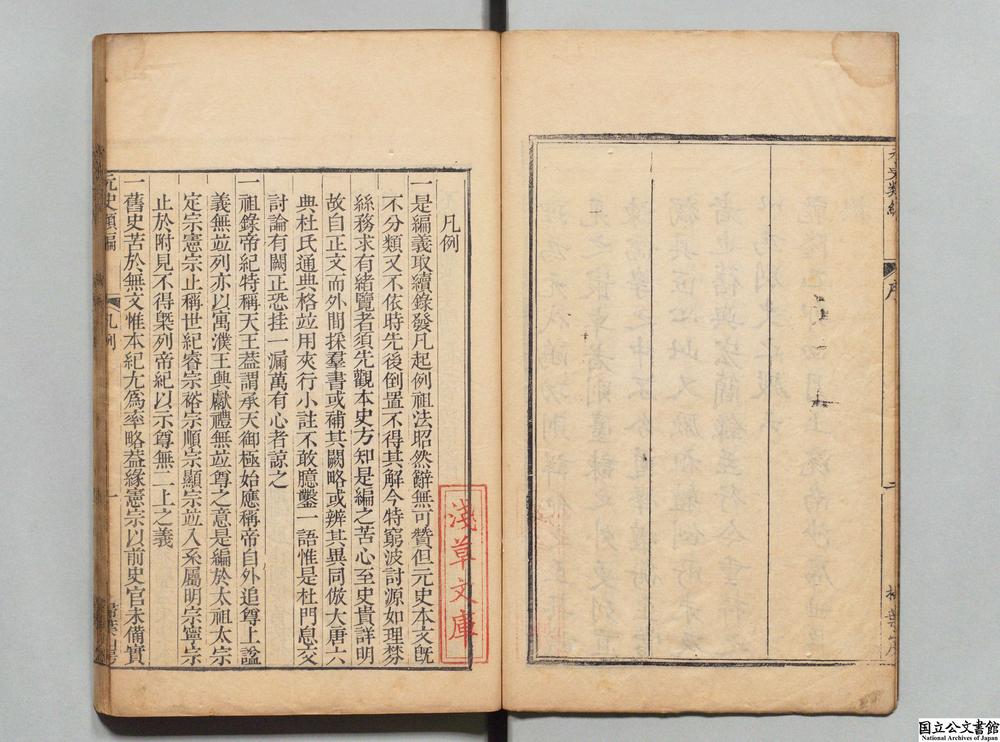 元史類編
序
凡例
一是編義取續錄發凡起例祖法昭然辭無可贊但元史本文旣
不分類又不依時先後倒置不得其解今特窮波討源如理棼
絲務求有緒覽者須先觀本史方知是編之苦心至史貴詳明
故自正文而外間採羣書或補其闕略或辨其異同倣大唐六
典杜氏通典格竝用夾行小註不敢臆鑿一語惟是杜門息交
討論有闕正恐挂一漏萬有心者諒之
一祖錄帝紀特稱天王葢謂承天御極始應稱帝自外追尊上諡
義無竝列亦以寓濮王興獻禮無竝尊之意是編於太祖太宗
定宗憲宗止稱世紀睿宗裕宗順宗顯宗竝入系屬明宗寧宗
止於附見不得槩列帝紀以示尊無二上之義
一舊史苦於無文惟本紀尤爲率略葢緣憲宗以前史官未備實
元史類編
凡例
一
淺草文庫
国立公文書館
National Archives of Japan